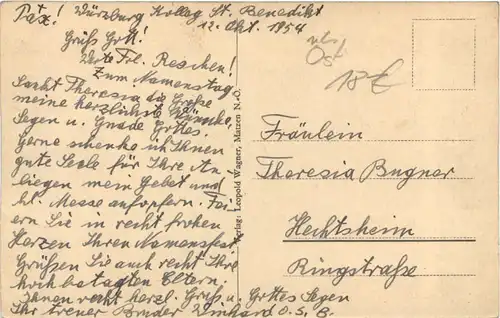 Pax! Würzburg Kolleg St. Benedikt
12. Okt. 1954
Grüß Gott!
Werte Frl. Reschen!
Zum Namenstag
Sankt Theresia die Große
meine herzlichste Wünsche,
Segen u. Gnade Gottes.
Gerne schenke ich Ihnen
gute Seele für Ihre An
liegen mein Gebet und
hl. Messe aufopfern. Fei
ern Sie in recht frohen
Herzen Ihren Namensfest
Grüßen Sie auch recht Ihre
hochbetagten Eltern.
Ihnen recht herzl. Gruß u. Gottes Segen
Ihr treuer Bruder O.S.B.
Verlag: Leopold Wagner, Matzen N.-Ö.
Öst
18€
Fräulein
Theresia Bugner
Hechtsheim
Ringstraße